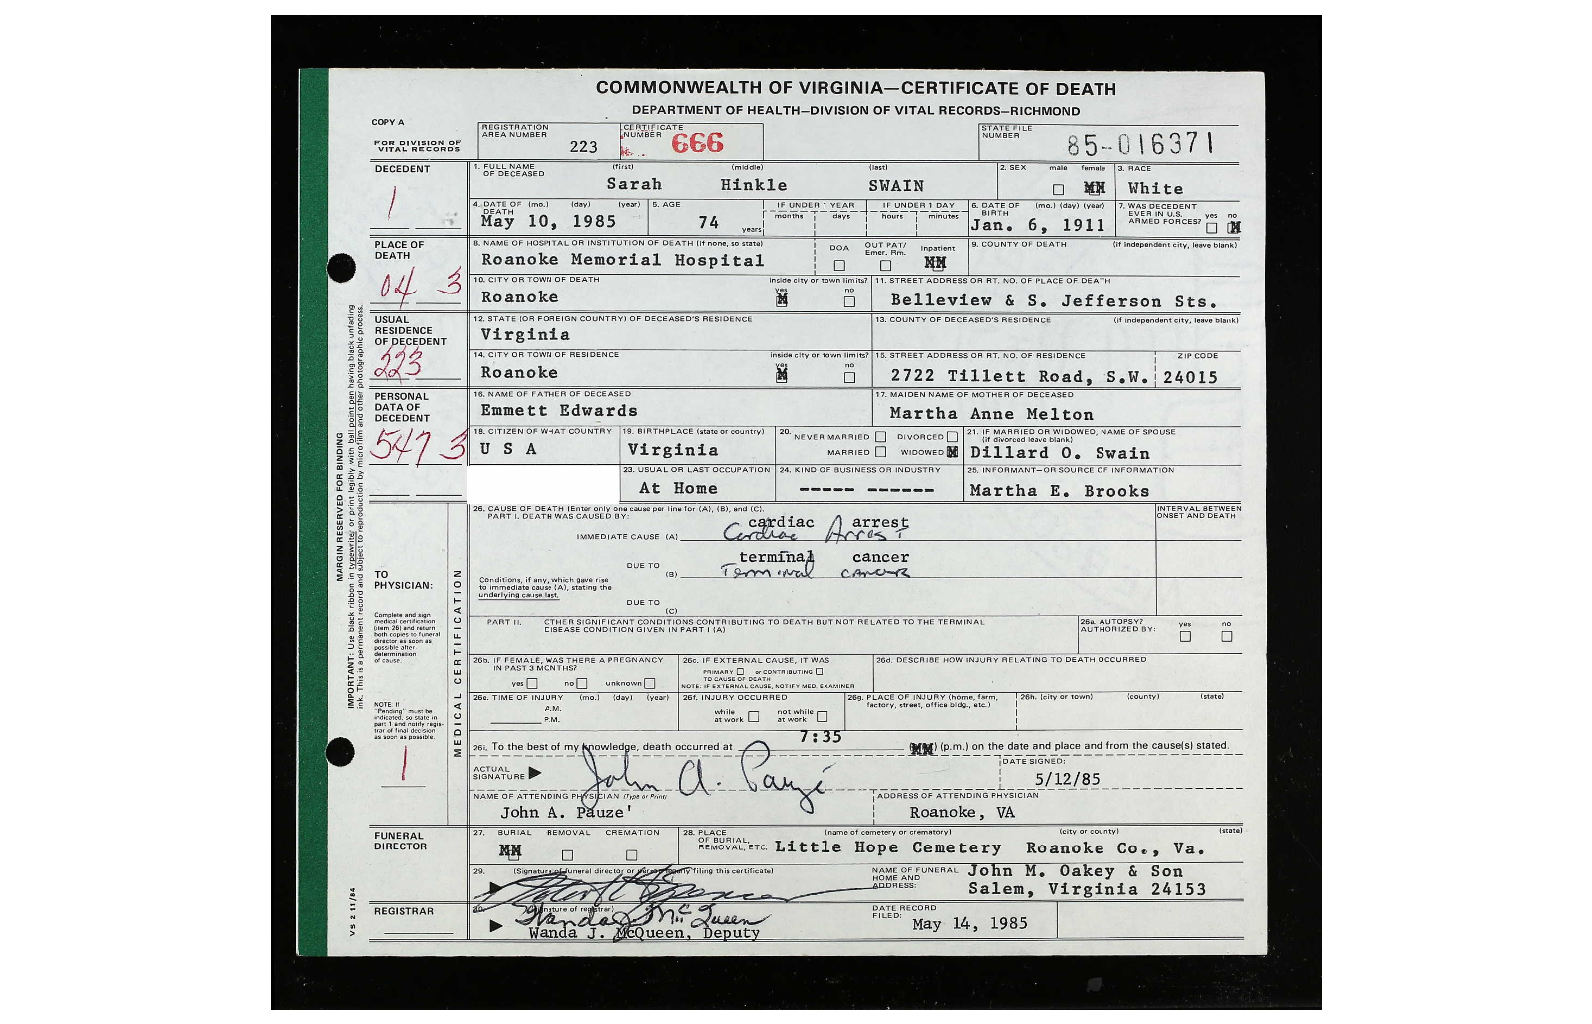 COMMONWEALTH OF VIRGINIA—CERTIFICATE OF DEATH
DEPARTMENT OF HEALTH—DIVISION OF VITAL RECORDS—RICHMOND
COPY A
FOR DIVISION OF VITAL RECORDS
REGISTRATION AREA NUMBER 223
CERTIFICATE NUMBER 666
STATE FILE NUMBER 85-016371
DECEDENT
1
1. FULL NAME OF DECEASED (first) (middle) (last)
Sarah Hinkle SWAIN
2. SEX male female
3. RACE White
4. DATE OF DEATH (mo.) (day) (year)
May 10, 1985
5. AGE 74 years
IF UNDER 1 YEAR months days
IF UNDER 1 DAY hours minutes
6. DATE OF BIRTH (mo.) (day) (year)
Jan. 6, 1911
7. WAS DECEDENT EVER IN U.S. ARMED FORCES? yes no
PLACE OF DEATH
04 3
8. NAME OF HOSPITAL OR INSTITUTION OF DEATH (If none, so state)
Roanoke Memorial Hospital
DOA OUT PAT/ Emer. Rm. Inpatient
9. COUNTY OF DEATH (if independent city, leave blank)
10. CITY OR TOWN OF DEATH inside city or town limits? yes no
Roanoke
11. STREET ADDRESS OR RT. NO. OF PLACE OF DEATH
Belleview & S. Jefferson Sts.
USUAL RESIDENCE OF DECEDENT
223
12. STATE (OR FOREIGN COUNTRY) OF DECEASED'S RESIDENCE
Virginia
13. COUNTY OF DECEASED'S RESIDENCE (if independent city, leave blank)
14. CITY OR TOWN OF RESIDENCE inside city or town limits? yes no
Roanoke
15. STREET ADDRESS OR RT. NO. OF RESIDENCE ZIP CODE
2722 Tillett Road, S.W. 24015
PERSONAL DATA OF DECEDENT
547 3
16. NAME OF FATHER OF DECEASED
Emmett Edwards
17. MAIDEN NAME OF MOTHER OF DECEASED
Martha Anne Melton
18. CITIZEN OF WHAT COUNTRY
U S A
19. BIRTHPLACE (state or country)
Virginia
20. NEVER MARRIED DIVORCED
MARRIED WIDOWED
21. IF MARRIED OR WIDOWED, NAME OF SPOUSE (if divorced leave blank)
Dillard O. Swain
23. USUAL OR LAST OCCUPATION
At Home
24. KIND OF BUSINESS OR INDUSTRY
----- ------
25. INFORMANT—OR SOURCE OF INFORMATION
Martha E. Brooks
MARGIN RESERVED FOR BINDING
IMPORTANT: Use black ribbon in typewriter or print legibly with ball point pen having black unfading
ink. This is a permanent record and subject to reproduction by microfilm and other photographic process.
MEDICAL CERTIFICATION
TO PHYSICIAN:
Complete and sign medical certification (item 26) and return both copies to funeral director as soon as possible after determination of cause.
NOTE: If "Pending" must be indicated, so state in part 1 and notify registrar of final decision as soon as possible.
1
26. CAUSE OF DEATH (Enter only one cause per line for (A), (B), and (C).
PART I. DEATH WAS CAUSED BY:
INTERVAL BETWEEN ONSET AND DEATH
cardiac arrest
IMMEDIATE CAUSE (A) Cardiac Arrest
terminal cancer
DUE TO (B) Terminal cancer
Conditions, if any, which gave rise to immediate cause (A), stating the underlying cause last.
DUE TO (C)
PART II. OTHER SIGNIFICANT CONDITIONS CONTRIBUTING TO DEATH BUT NOT RELATED TO THE TERMINAL
DISEASE CONDITION GIVEN IN PART I (A)
26a. AUTOPSY? AUTHORIZED BY: yes no
26b. IF FEMALE, WAS THERE A PREGNANCY IN PAST 3 MONTHS?
yes no unknown
26c. IF EXTERNAL CAUSE, IT WAS
PRIMARY or CONTRIBUTING
TO CAUSE OF DEATH
NOTE: IF EXTERNAL CAUSE, NOTIFY MED. EXAMINER
26d. DESCRIBE HOW INJURY RELATING TO DEATH OCCURRED
26e. TIME OF INJURY (mo.) (day) (year)
A.M.
P.M.
26f. INJURY OCCURRED
while at work not while at work
26g. PLACE OF INJURY (home, farm, factory, street, office bldg., etc.)
26h. (city or town) (county) (state)
7:35
26i. To the best of my knowledge, death occurred at (p.m.) on the date and place and from the cause(s) stated.
ACTUAL SIGNATURE John A. Pauzé
DATE SIGNED: 5/12/85
NAME OF ATTENDING PHYSICIAN (Type or Print)
John A. Pauze'
ADDRESS OF ATTENDING PHYSICIAN
Roanoke, VA
FUNERAL DIRECTOR
27. BURIAL REMOVAL CREMATION
28. PLACE OF BURIAL, REMOVAL, ETC. (name of cemetery or crematory) (city or county) (state)
Little Hope Cemetery Roanoke Co., Va.
29. (Signature of funeral director or person legally filing this certificate)
NAME OF FUNERAL HOME AND ADDRESS:
John M. Oakey & Son
Salem, Virginia 24153
REGISTRAR
30. (Signature of registrar)
Wanda J. McQueen
Wanda J. McQueen, Deputy
DATE RECORD FILED:
May 14, 1985
VS 2 11/84